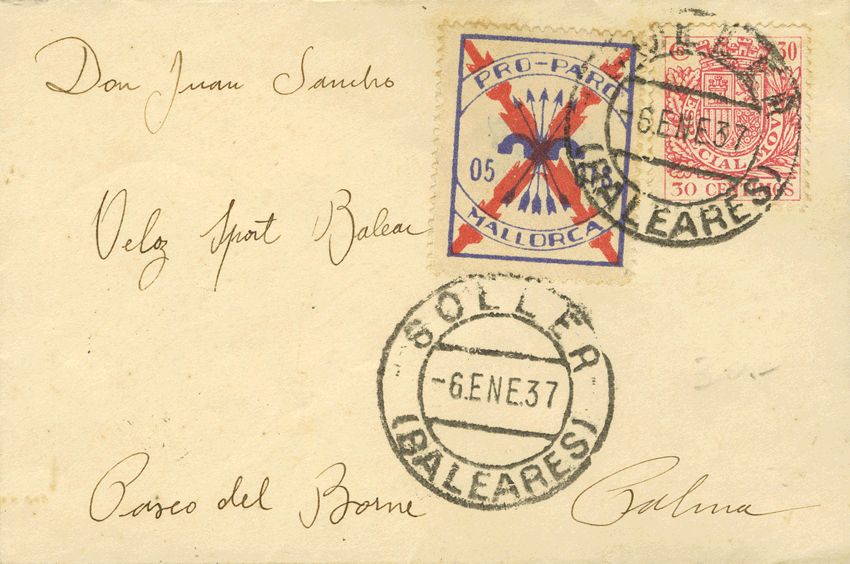 Don Juan Sancho
Veloz Sport Balear
Paseo del Borne Palma
PRO-PARO
05 CTS
MALLORCA
30
ESPECIAL MOVIL
30 CENTIMOS
SOLLER
-6.ENE.37
(BALEARES)
SOLLER
-6.ENE.37
(BALEARES)